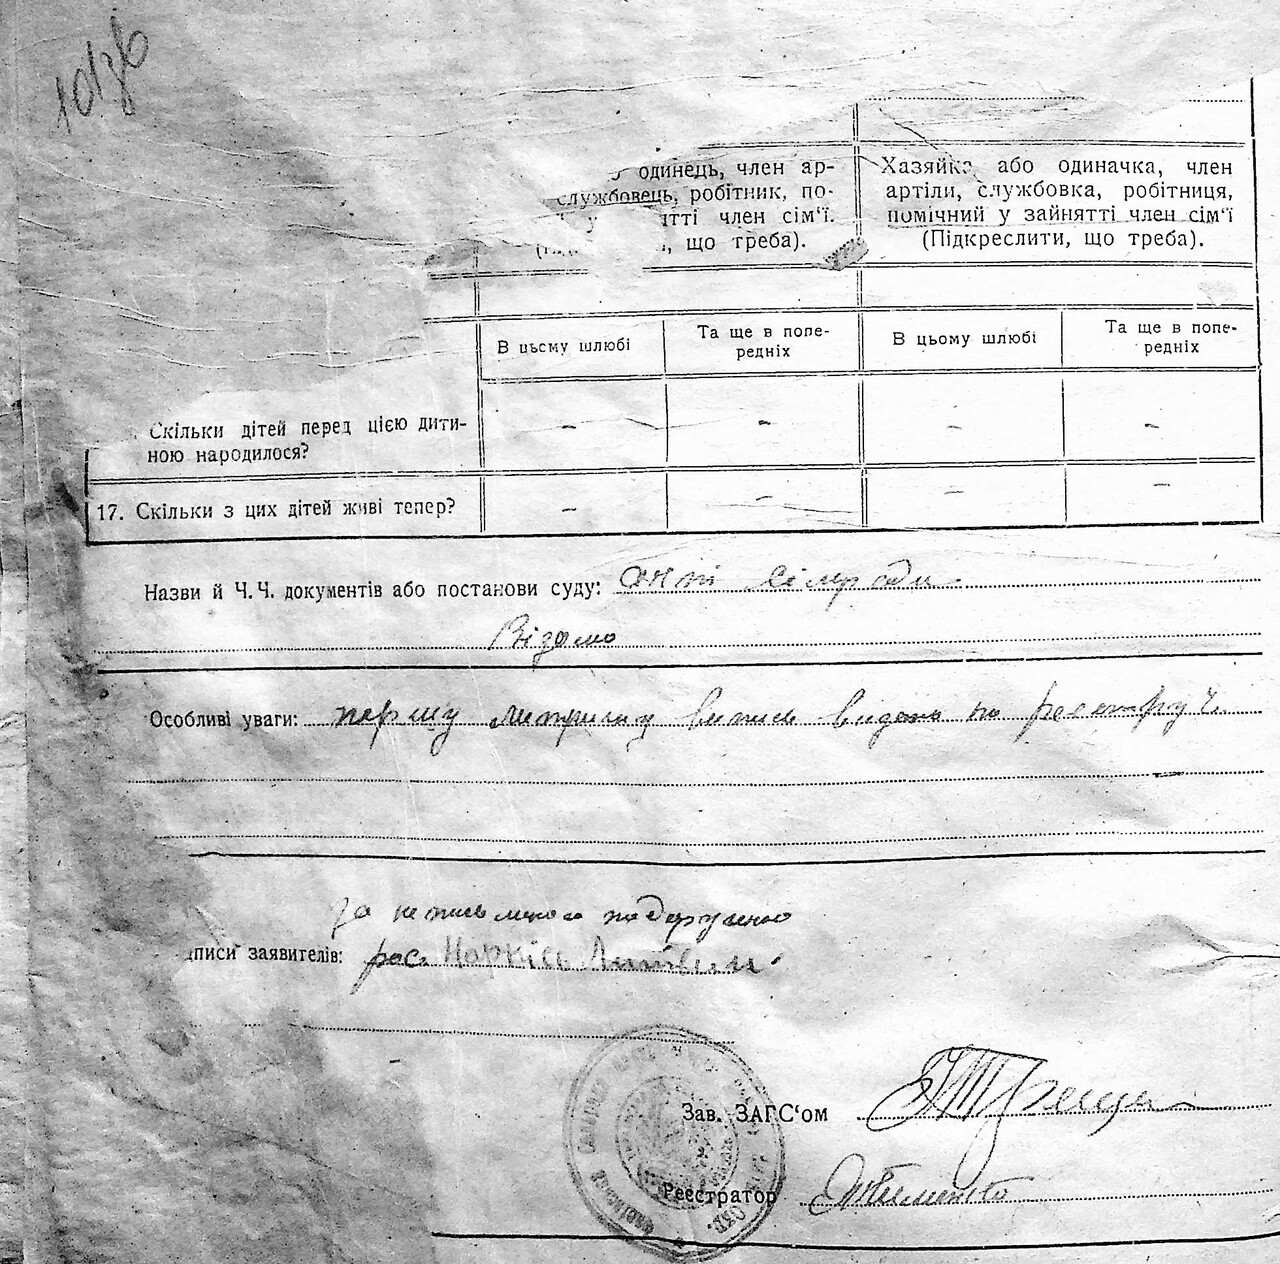 одинець, член ар-
службовець, робітник, по-
у тті член сім‘ї.
що треба).
Хазяйка або одиначка, член
артіли, службовка, робітниця,
помічний у зайнятті член сім‘ї
(Підкреслити, що треба).
В цьому шлюбі
Та ще в попе-
редніх
В цьому шлюбі
Та ще в попе-
редніх
Скільки дітей перед цією дити-
ною народилося?
- - - -
17. Скільки з цих дітей живі тепер?
- - - -
Назви й Ч.Ч. документів або постанови суду: сільради
Відомо
Особливі уваги: першу метричну випись видано по реєстру Ч.
за неписьменого
писи заявителів: рос. Литвин
Зав. ЗАГС‘ом
Реєстратор